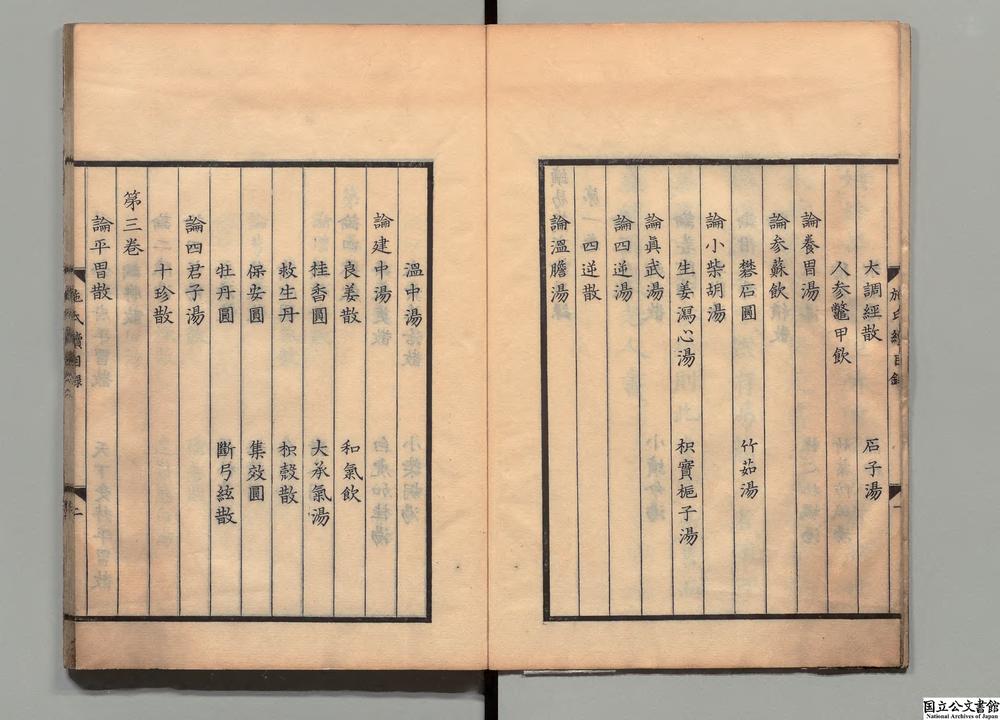 大調經散　石子湯
人参鼈甲飲
論養胃湯
論参蘇飲
礬石圓　竹茹湯
論小柴胡湯
生姜瀉心湯　枳實梔子湯
論眞武湯
論四逆湯
四逆散
論溫膽湯
溫中湯
論建中湯
良姜散　和氣飲
桂香圓　大承氣湯
救生丹　枳殼散
保安圓　集效圓
牡丹圓　斷弓絃散
論四君子湯
十珍散
第三卷
論平胃散
施氏續目錄
二
国立公文書館
National Archives of Japan